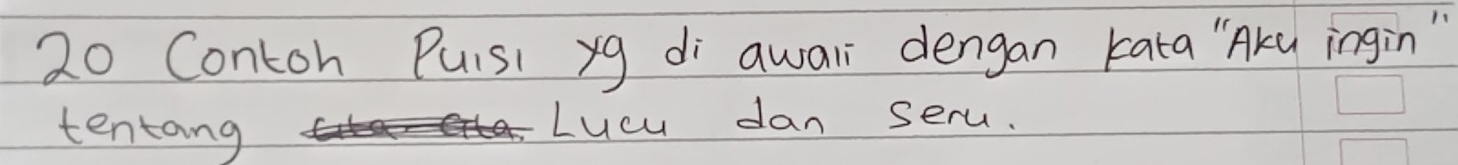 20 Contoh Puisi yg di awali dengan kata "Aku ingin"
tentang cita-cita Lucu dan seru.